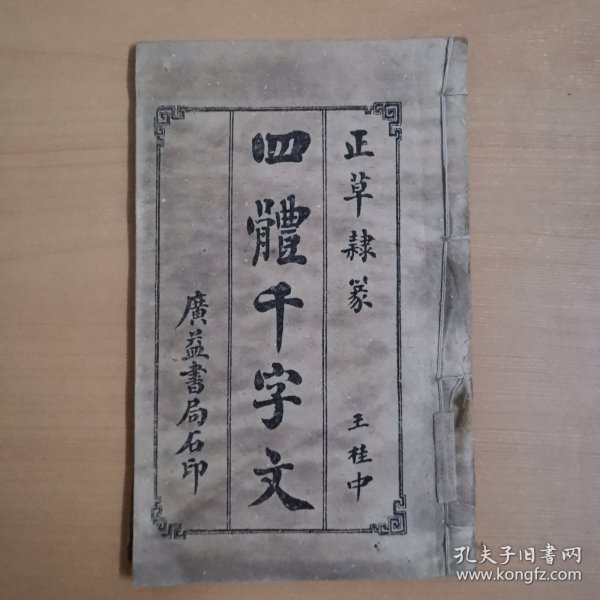 正草隸篆
王桂中
四體千字文
廣益書局石印
孔夫子旧书网
www.kongfz.com